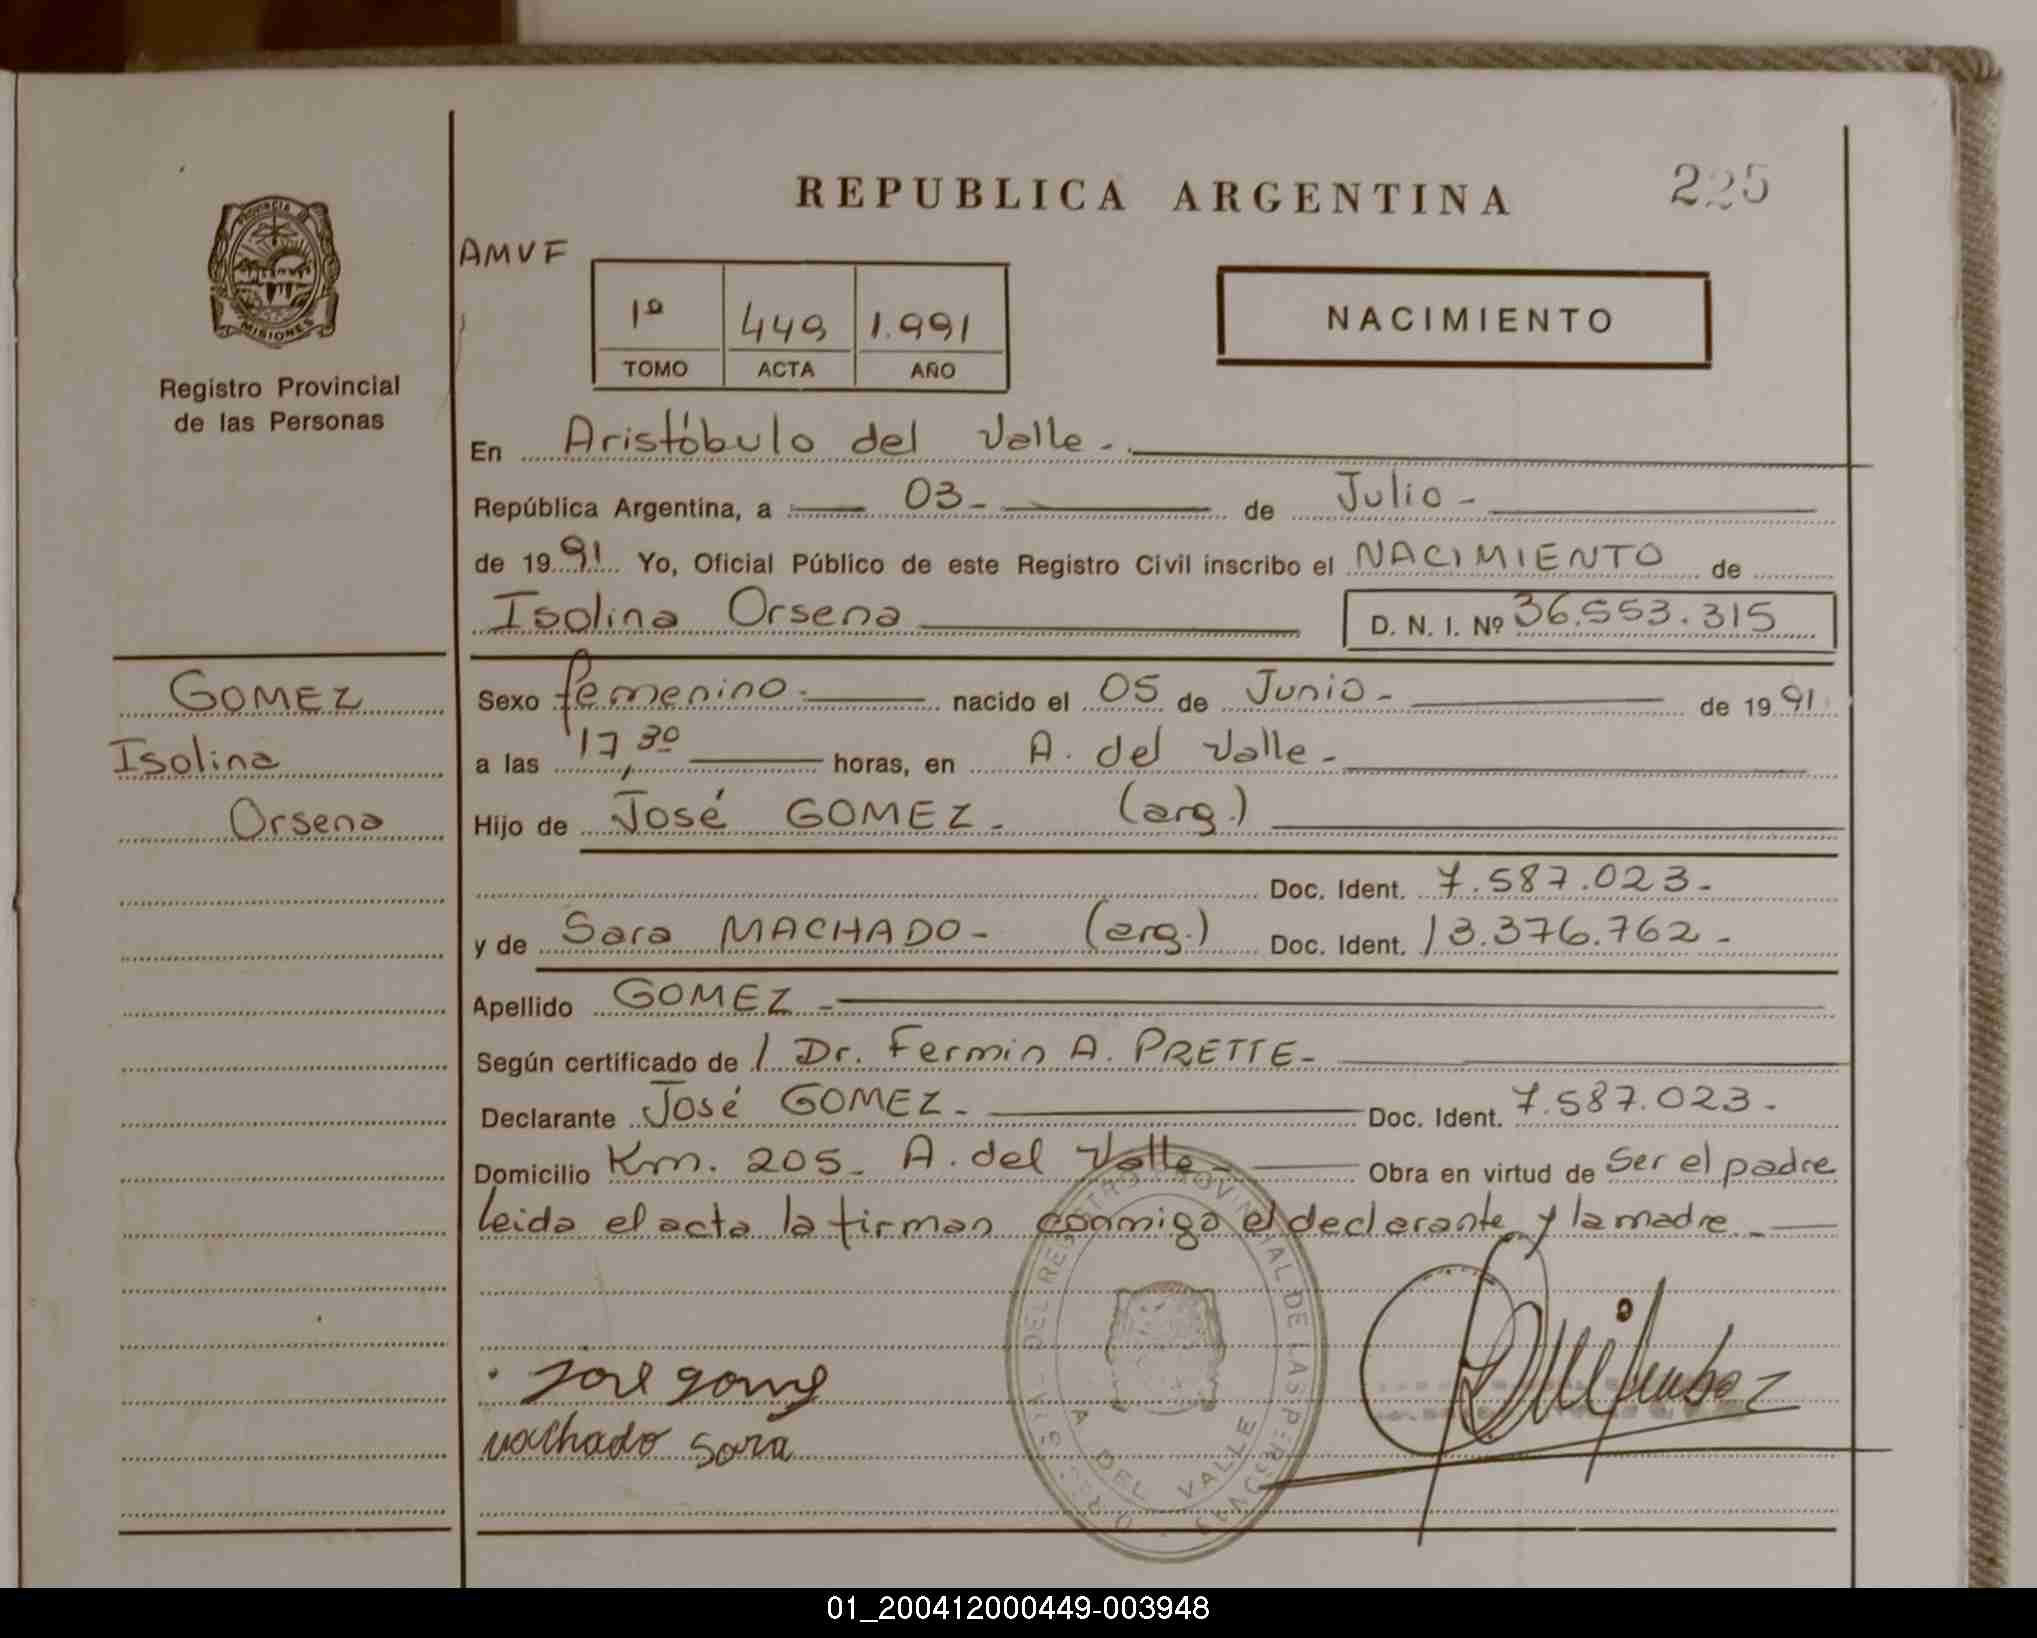 REPUBLICA ARGENTINA
225
PROVINCIA DE
MISIONES
Registro Provincial
de las Personas
AMVF
1º 449 1.991
TOMO ACTA AÑO
NACIMIENTO
En Aristóbulo del Valle -
República Argentina, a 03 - de Julio -
de 1991 Yo, Oficial Público de este Registro Civil inscribo el NACIMIENTO de
Isolina Orsena D. N. I. Nº 36.553.315
GOMEZ
Isolina
Orsena
Sexo femenino - nacido el 05 de Junio - de 1991
a las 17,30 horas, en A. del Valle -
Hijo de José GOMEZ - (arg.)
Doc. Ident. 7.587.023 -
y de Sara MACHADO - (arg.) Doc. Ident. 13.376.762 -
Apellido GOMEZ -
Según certificado de / Dr. Fermin A. PRETTE -
Declarante José GOMEZ - Doc. Ident. 7.587.023 -
Domicilio Km. 205 - A. del Valle - Obra en virtud de Ser el padre
leida el acta la firman conmigo el declarante y la madre -
DEL REGISTRO PROVINCIAL DE LAS PERSONAS
A DEL VALLE
José gomez
machado sara
01_200412000449-003948